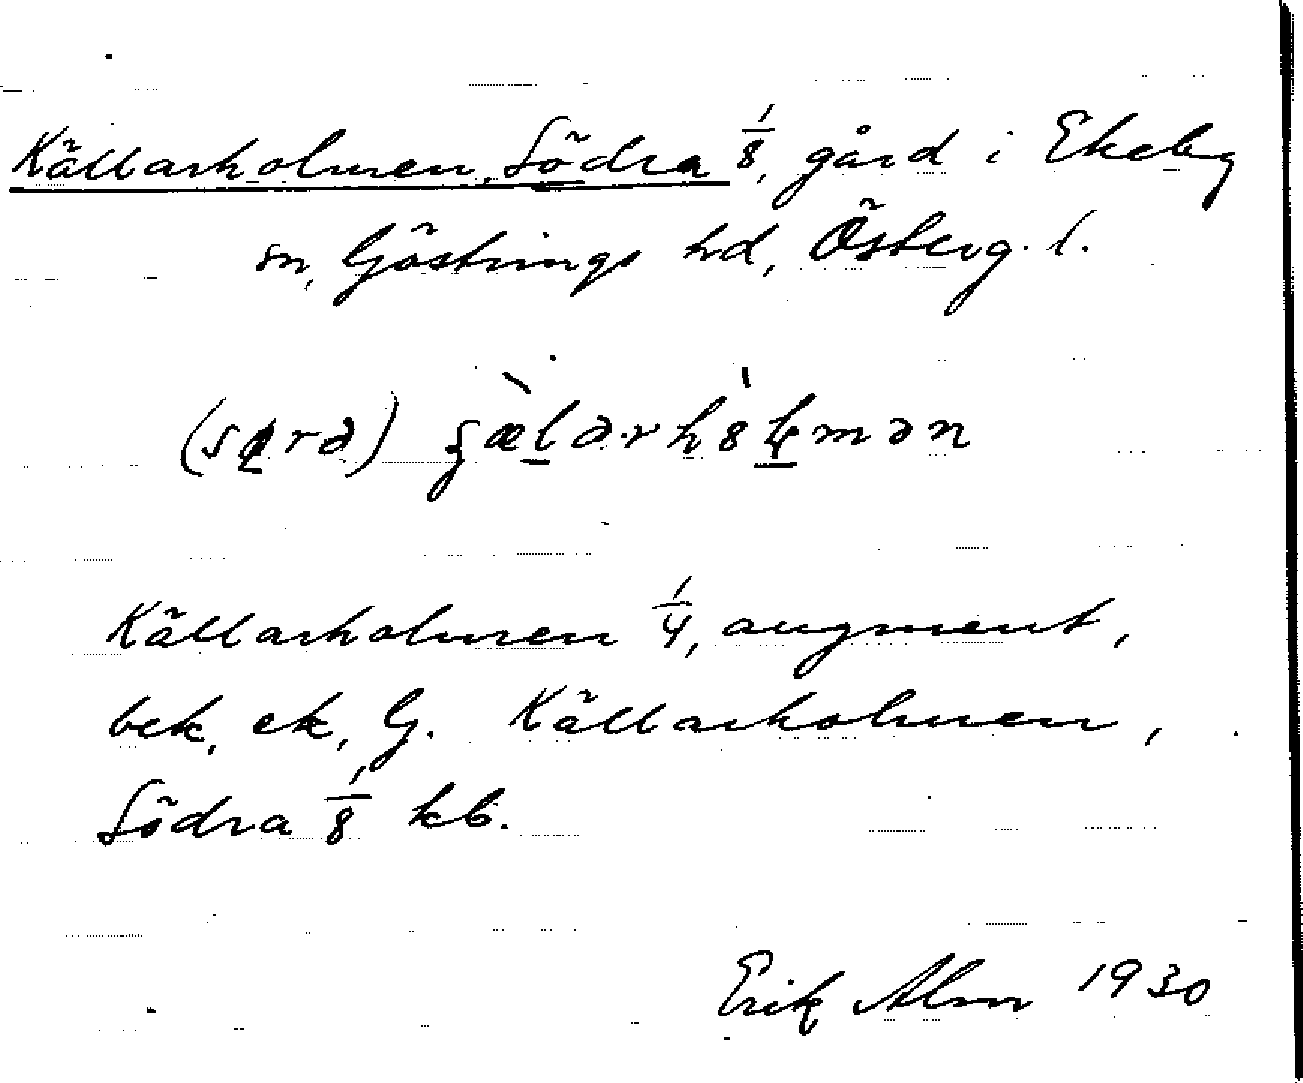 Källarholmen, Södra 1/8, gård i Ekeby
sn, Göstrings hd, Österg. l.
Källarholmen 1/4, augment,
bek. ek, G. Källarholmen,
Södra 1/8 kb.
Erik Alm 1930